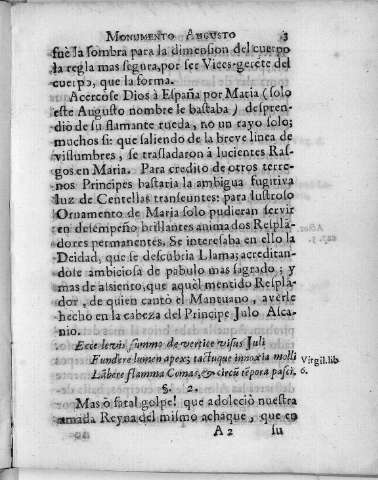 MONUMENTO AUGUSTO 3
fuè la sombra para la dimension del cuerpo
la regla mas segura, por ser Vices-gerete del
cuerpo, que la forma.
Acercòse Dios à España por Maria (solo
este Augusto nombre le bastaba) despren-
diò de su flamante rueda, no un rayo solo;
muchos si: que saliendo de la breve linea de
vislumbres, se trasladaron à lucientes Ras-
gos en Maria. Para credito de otros terre-
nos Principes bastaria la ambigua fugitiva
luz de Centellas transeuntes: para lustroso
Ornamento de Maria solo pudieran servir
en desempeño brillantes animados Resplã-
dores permanentes. Se interesaba en ello la
Deidad, que se descubria Llama; acreditan-
dose ambiciosa de pabulo mas sagrado; y
mas de assiento, que aquel mentido Resplã-
dor, de quien cantò el Mantuano, averse
hecho en la cabeza del Principe Julo Asca-
nio.
Ecce levis summo de vertice visus Juli
Fundere lumen apex; tactuque innoxia molli Virgil. lib.
Lãbere flamma Comas, & circũ tẽpora pasci. 6.
§. 2.
Mas ò fatal golpe! que adoleciò nuestra
amada Reyna del mismo achaque, que en
A 2 su